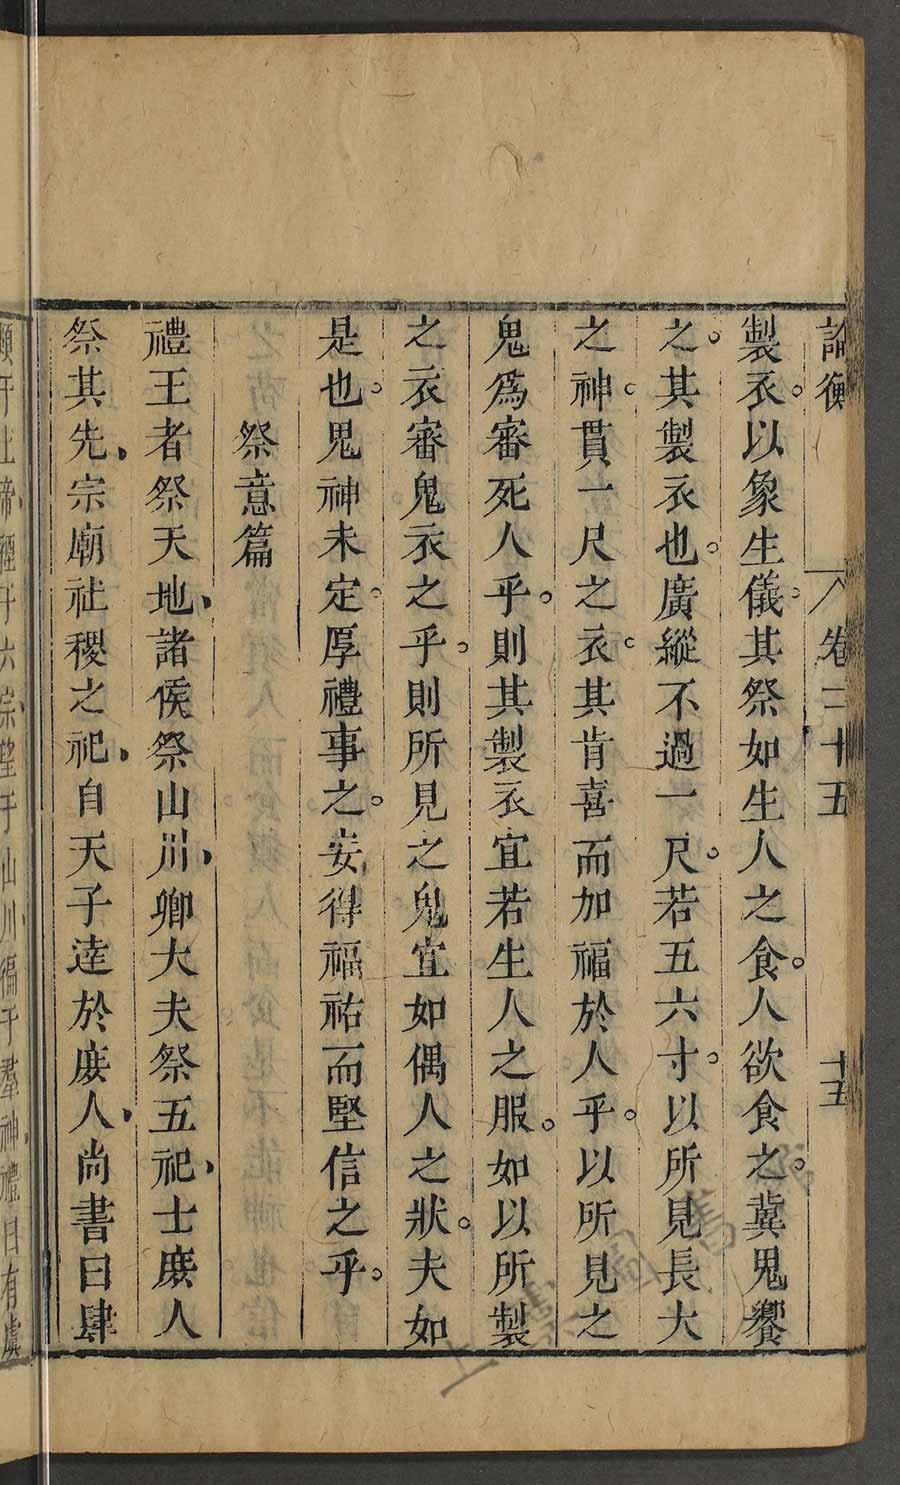 論衡 卷二十五 十五
製衣。以象生儀。其祭如生人之食。人欲食之。冀鬼饗
之。其製衣也。廣縱不過一尺。若五六寸。以所見長大
之神。貫一尺之衣。其肯喜而加福於人乎。以所見之
鬼爲審死人乎。則其製衣宜若生人之服。如以所製
之衣審鬼衣之乎。則所見之鬼宜如偶人之狀。夫如
是也。鬼神未定。厚禮事之。安得福祐而堅信之乎。
祭意篇
禮王者祭天地、諸侯祭山川、卿大夫祭五祀、士庶人
祭其先、宗廟社稷之祀、自天子達於庶人、尚書曰肆
類于上帝、禋于六宗、望于山川、徧于羣神、禮曰有虞